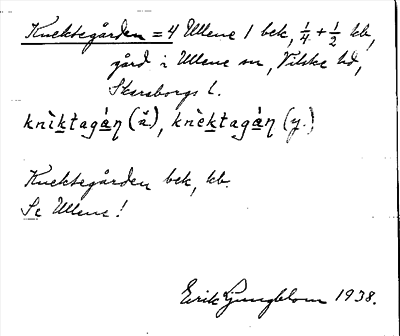 Knektegården = 4 Ullene 1 bek, 1/4 + 1/2 kb,
gård i Ullene sn, Vilske hd,
Skaraborgs l.
knìktagán (ä.), knèktagán (y.)
Knektegården bek, kb.
Se Ullene!
Erik Ljungblom 1938.